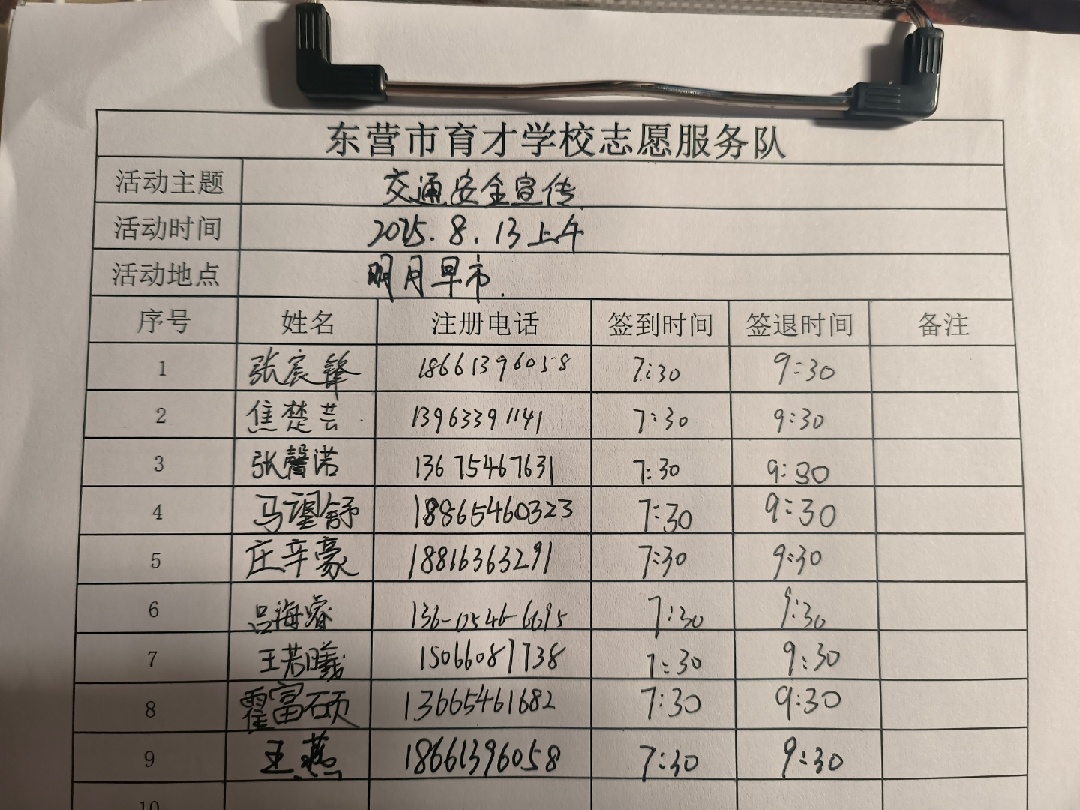 东营市育才学校志愿服务队
活动主题 交通安全宣传
活动时间 2025.8.13上午
活动地点 明月早市.
序号 姓名 注册电话 签到时间 签退时间 备注
1 张宸锋 18661396058 7:30 9:30
2 焦楚芸 13963391141 7:30 9:30
3 张馨诺 13675467631 7:30 9:30
4 马舒 18865460323 7:30 9:30
5 庄辛豪 18816363291 7:30 9:30
6 吕海睿 7:30 9:30
7 王若曦 15066087738 7:30 9:30
8 霍富硕 13665461682 7:30 9:30
9 王燕 18661396058 7:30 9:30
10